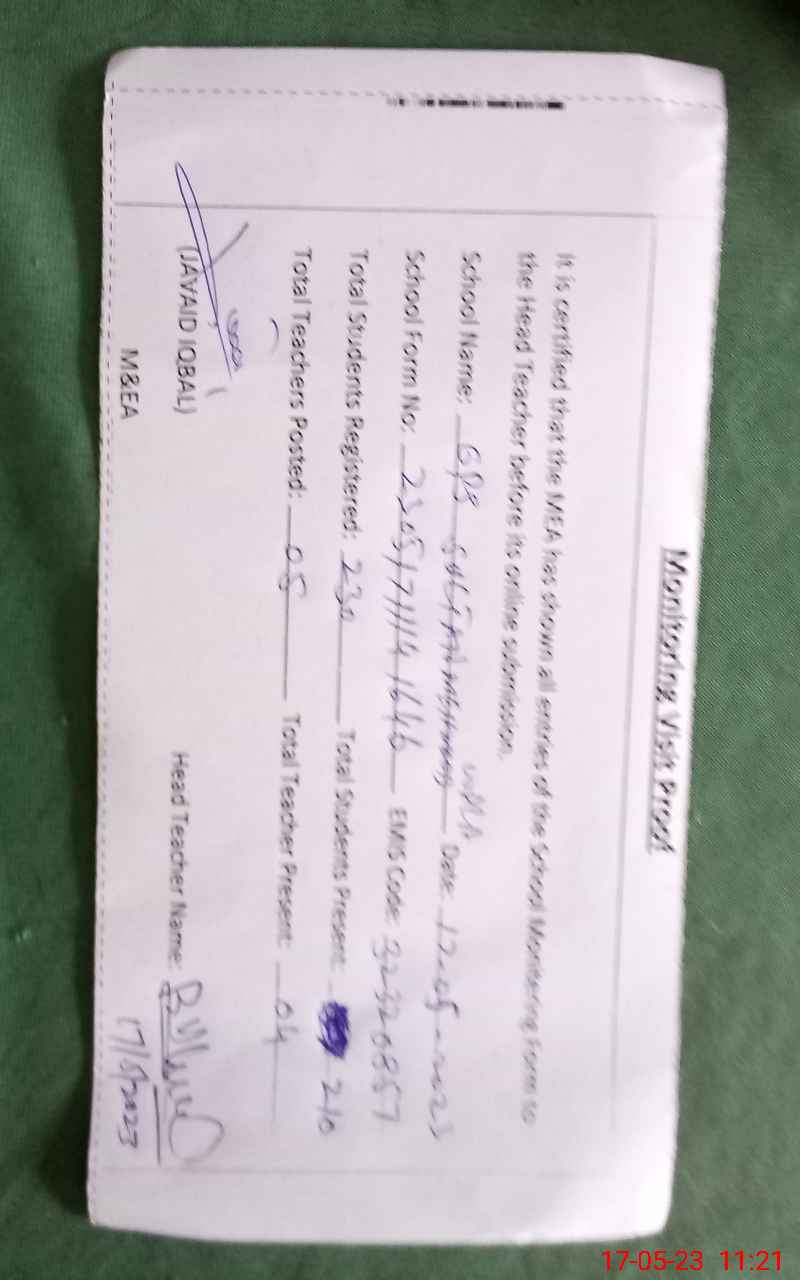 Monitoring Visit Proof
It is certified that the MEA has shown all entries of the School Monitoring Form to
the Head Teacher before its online submission.
School Name: GPS Date: 17-05-2023
School Form No: EMIS Code:
Total Students Registered: 230 Total Students Present: 210
Total Teachers Posted: 05 Total Teacher Present: 04
(JAVAID IQBAL) Head Teacher Name:
M&EA 17/5/2023
17-05-23 11:21